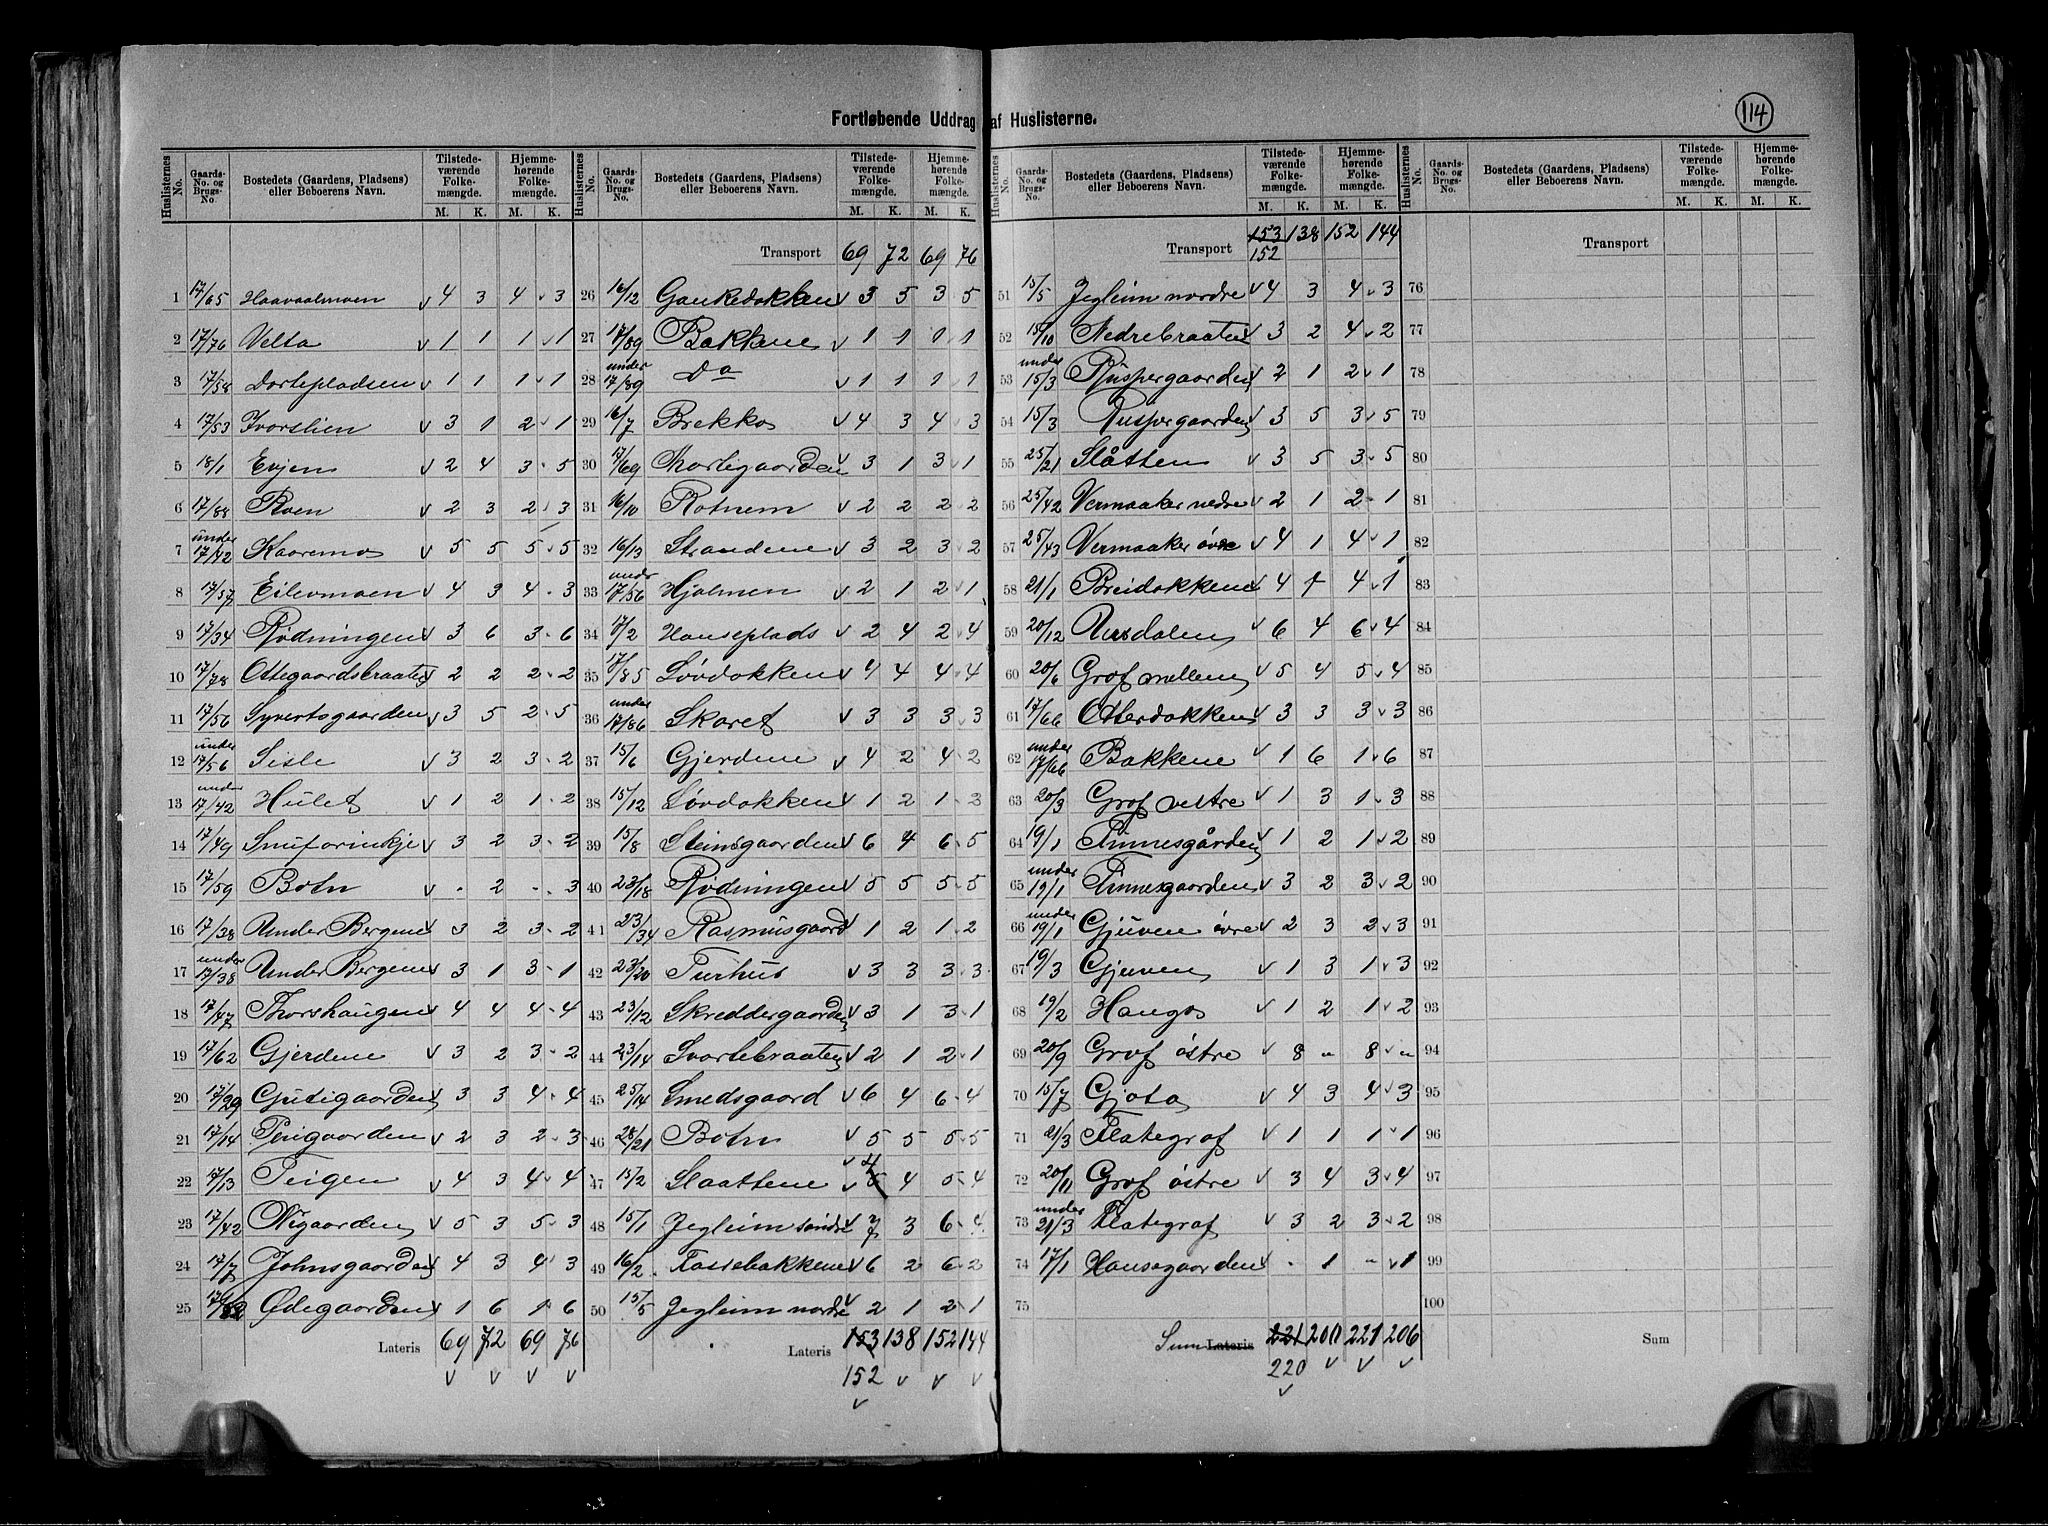 114
Fortløbende Uddrag af Huslisterne.
Huslisternes No. | Gaards-No. og Brugs-No. | Bostedets (Gaardens, Pladsens) eller Beboerens Navn. | Tilstede-værende Folke-mængde. M. K. | Hjemme-hørende Folke-mængde. M. K.
1 17/65 Haavaalmoen v 4 3 4 v 3
2 17/76 Velta v 1 1 1 v 1
3 17/58 Dortepladsen v 1 1 1 v 1
4 17/53 Ivorslien v 3 1 2 v 1
5 18/1 Evjen v 2 4 3 5
6 17/88 Roen v 2 3 2 3
7 under 17/42 Kaaremo v 5 5 5 5
8 17/57 Eilevmoen v 4 3 4 3
9 17/34 Rødningen v 3 6 3 6
10 17/78 Ottegaardsbraaten v 2 2 2 2
11 17/56 Syvertsgaarden v 3 5 2 5
12 under 17/56 Sisle v 3 2 3 2
13 under 17/42 Hulet v 1 2 1 2
14 17/49 v 3 2 3 2
15 17/59 Botn v - 2 - 3
16 17/38 Under Bergene v 3 2 3 2
17 under 17/38 Under Bergene v 3 1 3 1
18 17/47 Thorshaugen v 4 4 4 4
19 17/62 Gjerdene v 3 2 3 2
20 17/29 Gutigaarden v 3 3 4 4
21 17/14 Perigaarden v 2 3 2 3
22 17/13 Teigen v 4 3 4 4
23 17/42 Nigaarden v 5 3 5 3
24 17/7 Johnsgaarden v 4 3 4 3
25 Ødegaarden v 1 6 1 6
Lateris 69 72 69 76
v v v v
Transport 69 72 69 76
26 16/12 Gaukedokken v 3 5 3 5
27 17/89 Bakkene v 1 1 1 1
28 under 17/89 Do v 1 1 1 1
29 16/7 Brekko v 4 3 4 3
30 17/69 v 3 1 3 1
31 16/10 Rotnem v 2 2 2 2
32 16/13 Strandene v 3 2 3 2
33 under 17/56 Hjalmen v 2 1 2 1
34 17/2 Hanseplads v 2 4 2 4
35 17/85 Løvdokken v 4 4 4 4
36 under 17/86 Skaret v 3 3 3 3
37 15/6 Gjerdene v 4 2 4 2
38 15/12 Løvdokken v 1 2 1 3
39 15/8 Steinsgaarden v 6 4 6 5
40 23/18 Rødningen v 5 5 5 5
41 23/34 Rasmusgaard v 1 2 1 2
42 23/20 Turhus v 3 3 3 3
43 23/12 Skreddergaarden v 3 1 3 1
44 23/14 Svartebraaten v 2 1 2 1
45 25/14 Smedsgaard v 6 4 6 4
46 28/21 Botn v 5 5 5 5
47 15/2 Slaattene v 4 5 4 5 4
48 15/1 Jegleim søndre v 7 3 6 4
49 16/2 v 6 2 6 2
50 15/5 Jegleim nordre v 2 1 2 1
Lateris 153 138 152 144
152 v v v
v
Transport 153 138 152 144
152
51 15/5 Jegleim nordre v 4 3 4 3
52 15/10 Nedrebraaten v 3 2 4 2
53 under 15/3 Ruspergaarden v 2 1 2 1
54 15/3 Ruspergaarden v 3 5 3 5
55 25/21 Slåtten v 3 5 3 5
56 25/42 Vermaaker nedre v 2 1 2 1
57 25/43 Vermaaker øvre v 4 1 4 1
58 21/1 Breidokkene v 4 1 4 1
59 20/12 Ursdalen v 6 4 6 4
60 20/6 Grøf mellem v 5 4 5 4
61 17/66 Otterdokken v 3 3 3 3
62 under 17/66 Bakkene v 1 6 1 6
63 20/3 Grøf vestre v 1 3 1 3
64 19/1 Tinnesgården v 1 2 1 2
65 under 19/1 Tinnesgaarden v 3 2 3 2
66 under 19/1 Gjuven øvre v 2 3 2 3
67 19/3 Gjuven v 1 3 1 3
68 19/2 Haugo v 1 2 1 2
69 20/9 Grøf østre v 8 " 8 "
70 15/7 Gjota v 4 3 4 3
71 21/3 Flategraf v 1 1 1 1
72 20/11 Grøf østre v 3 4 3 4
73 under 21/3 Flategraf v 3 2 3 2
74 17/1 Hansegaarden v - 1 - 1
75
Sum Lateris 221 200 221 206
220 v v v
v
Transport
76
77
78
79
80
81
82
83
84
85
86
87
88
89
90
91
92
93
94
95
96
97
98
99
100
Sum